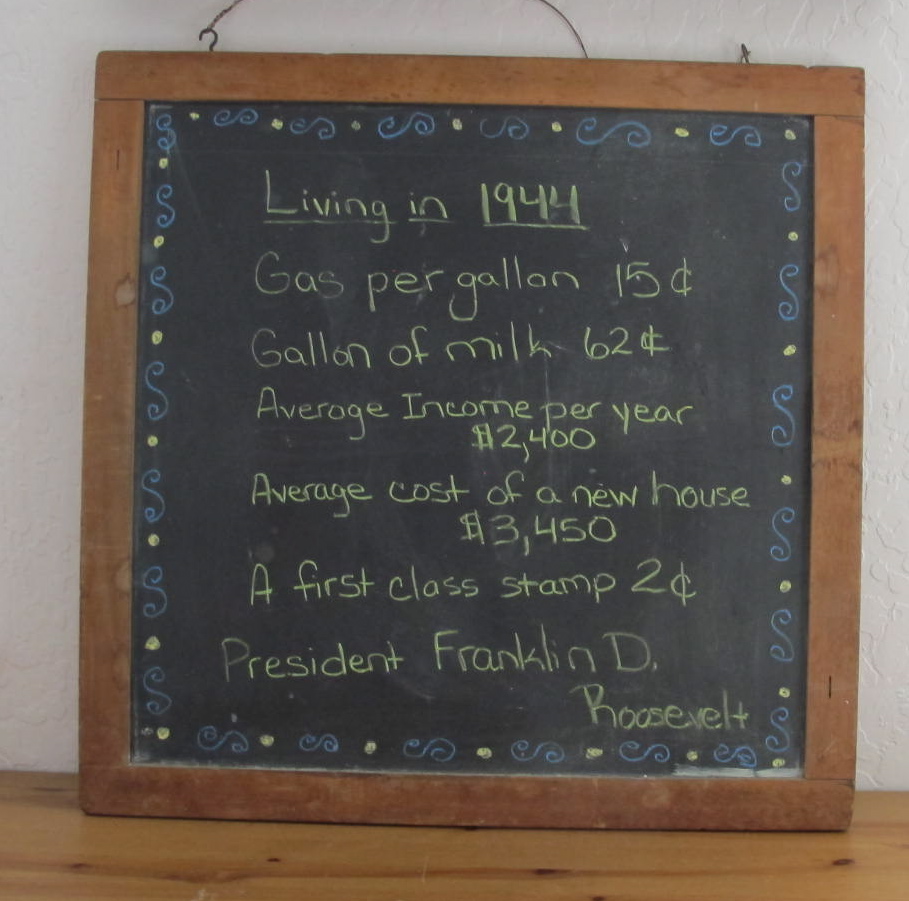 Living in 1944
Gas per gallon 15¢
Gallon of milk 62¢
Average Income per year
$2,400
Average cost of a new house
$3,450
A first class stamp 2¢
President Franklin D.
Roosevelt